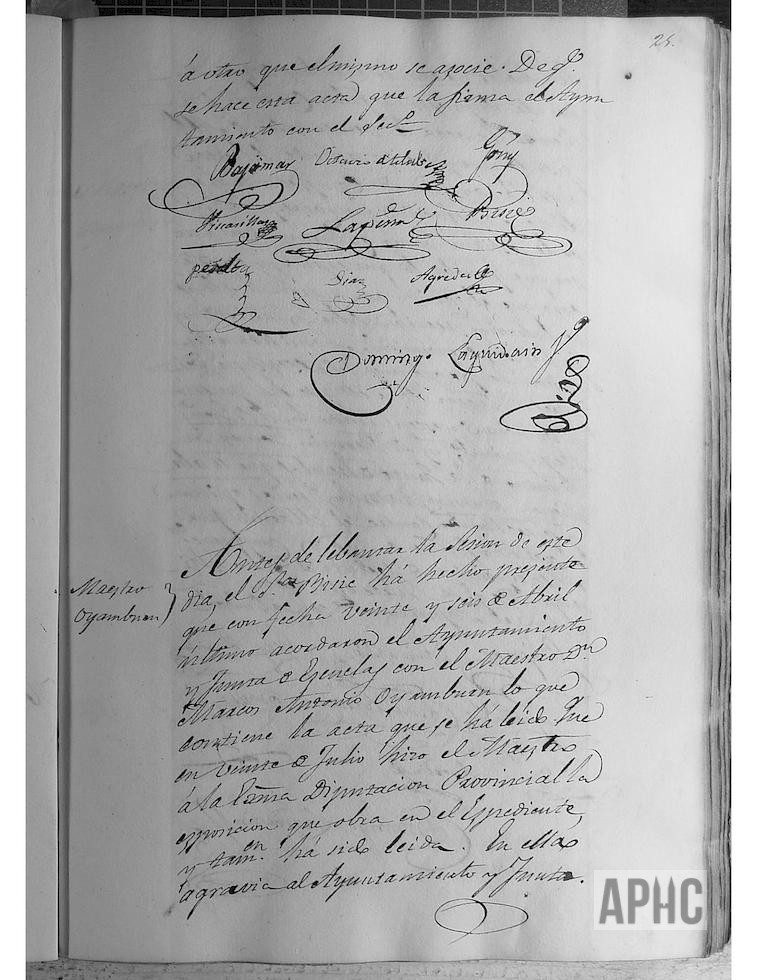 25.
á otro que el mismo se asocie. De q.e
se hace esta acta que la firma el Ayun
tamiento con el Sec.o
Bajamar Octavio de Toledo Goñy
Lapeña Bisié
peralta Diaz Agreda
Domingo Laquidain
Srio
Maestro
Oyamburu
Antes de lebantar la sesion de este
dia, el S.or Bisié há hecho presente
que con fecha veinte y seis de Abril
último acordaron el Ayuntamiento
y Junta de Escuelas con el Maestro D.n
Marcos Antonio Oyamburu lo que
contiene la acta que se há leido. Que
en veinte de Julio hizo el Maestro
á la Exma Diputacion Provincial la
exposicion que obra en el Expediente,
y tam.en há sido leida. En ella
agravia al Ayuntamiento y Junta.
APHC